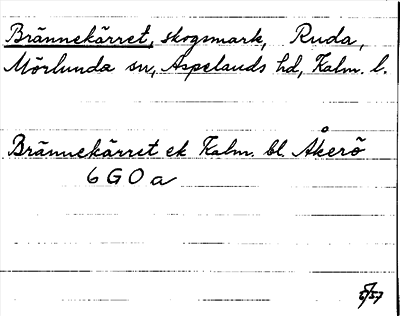 Brännekärret, skogsmark, Ruda,
Mörlunda sn, Aspelands hd, Kalm. l.
Brännekärret ek Kalm. bl. Åkerö
6 G 0 a